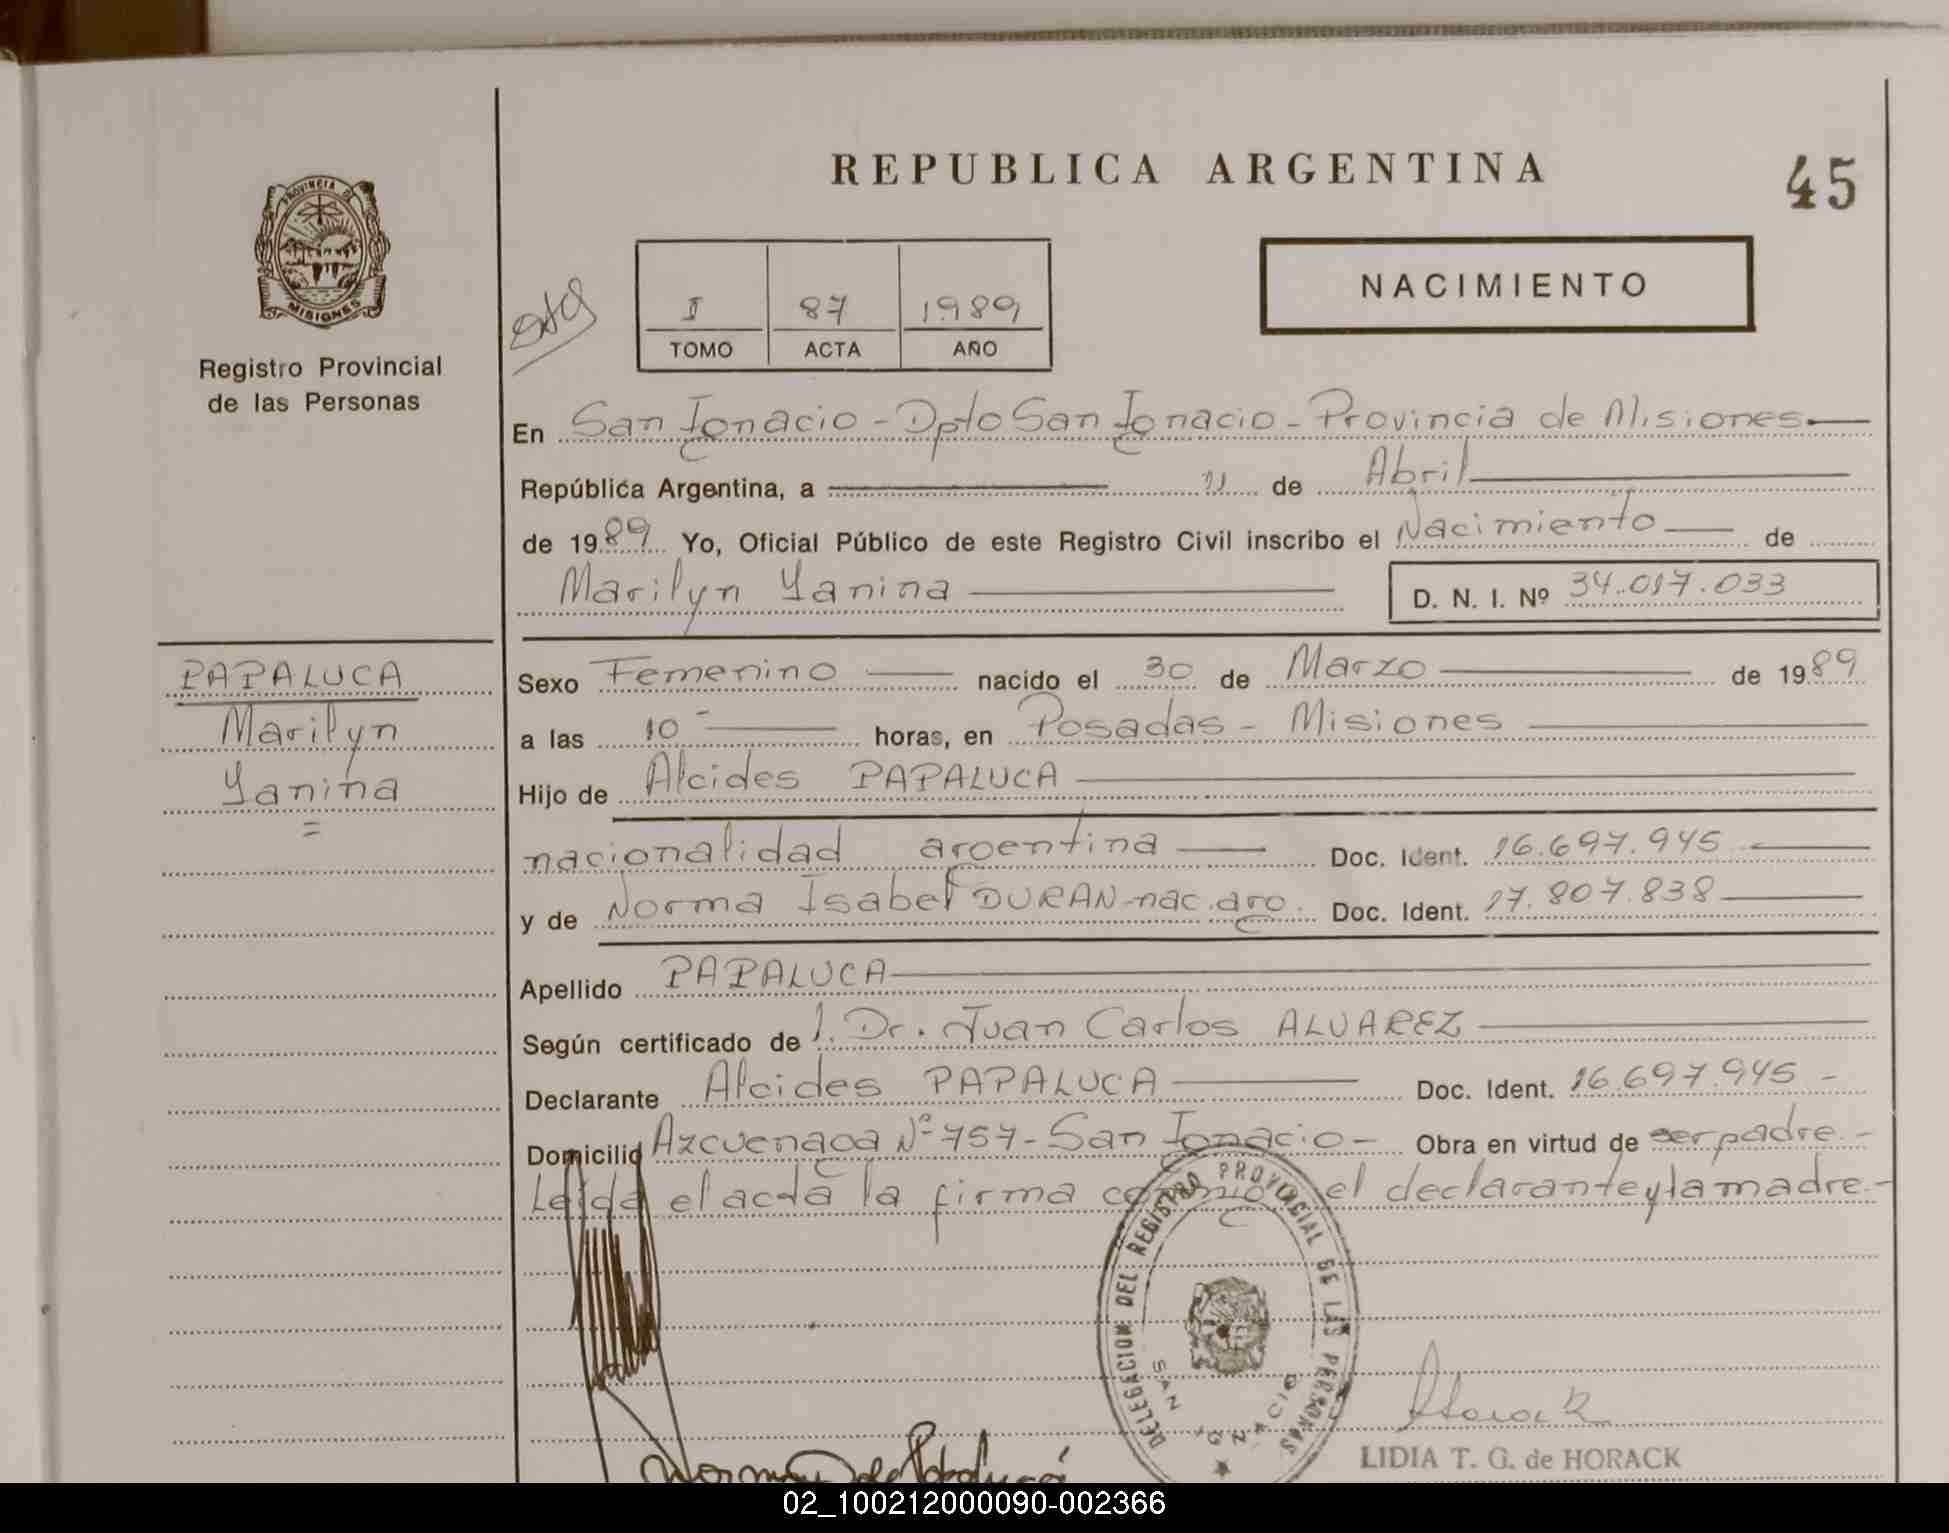 REPUBLICA ARGENTINA
45
PROVINCIA DE
MISIONES
Registro Provincial
de las Personas
I 87 1989
TOMO ACTA AÑO
NACIMIENTO
En San Ignacio - Dpto San Ignacio - Provincia de Misiones
República Argentina, a 11 de Abril
de 1989 Yo, Oficial Público de este Registro Civil inscribo el Nacimiento de
Marilyn Yanina D. N. I. Nº 34.017.033
PAPALUCA
Marilyn
Yanina
Sexo Femenino nacido el 30 de Marzo de 1989
a las 10 horas, en Posadas - Misiones
Hijo de Alcides PAPALUCA
nacionalidad argentina Doc. Ident. 16.697.945
y de Norma Isabel DURAN - nac. arg. Doc. Ident. 17.807.838
Apellido PAPALUCA
Según certificado de Dr. Juan Carlos ALVAREZ
Declarante Alcides PAPALUCA Doc. Ident. 16.697.945 -
Domicilio Azcuenaga Nº 757 - San Ignacio - Obra en virtud de ser padre. -
Leída el acta la firma conmigo el declarante y la madre. -
DELEGACION DEL REGISTRO PROVINCIAL DE LAS PERSONAS
SAN IGNACIO
Horack
LIDIA T. G. de HORACK
02_100212000090-002366